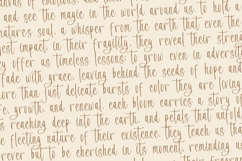 and see the magic in the world around us. to hold a
natures soul, a whisper from the earth that even the
est impact. in their fragility, they reveal their streng
y offer us timeless lessons: to grow even in adversity
fade with grace, leaving behind the seeds of hope and
ore than just delicate bursts of color they are living
e, growth, renewal. each bloom carries a story of
s reaching deep into the earth, and petals that unfold
e fleeting nature of their existence, they teach us tha
ever but to be cherished in its moment. reminding